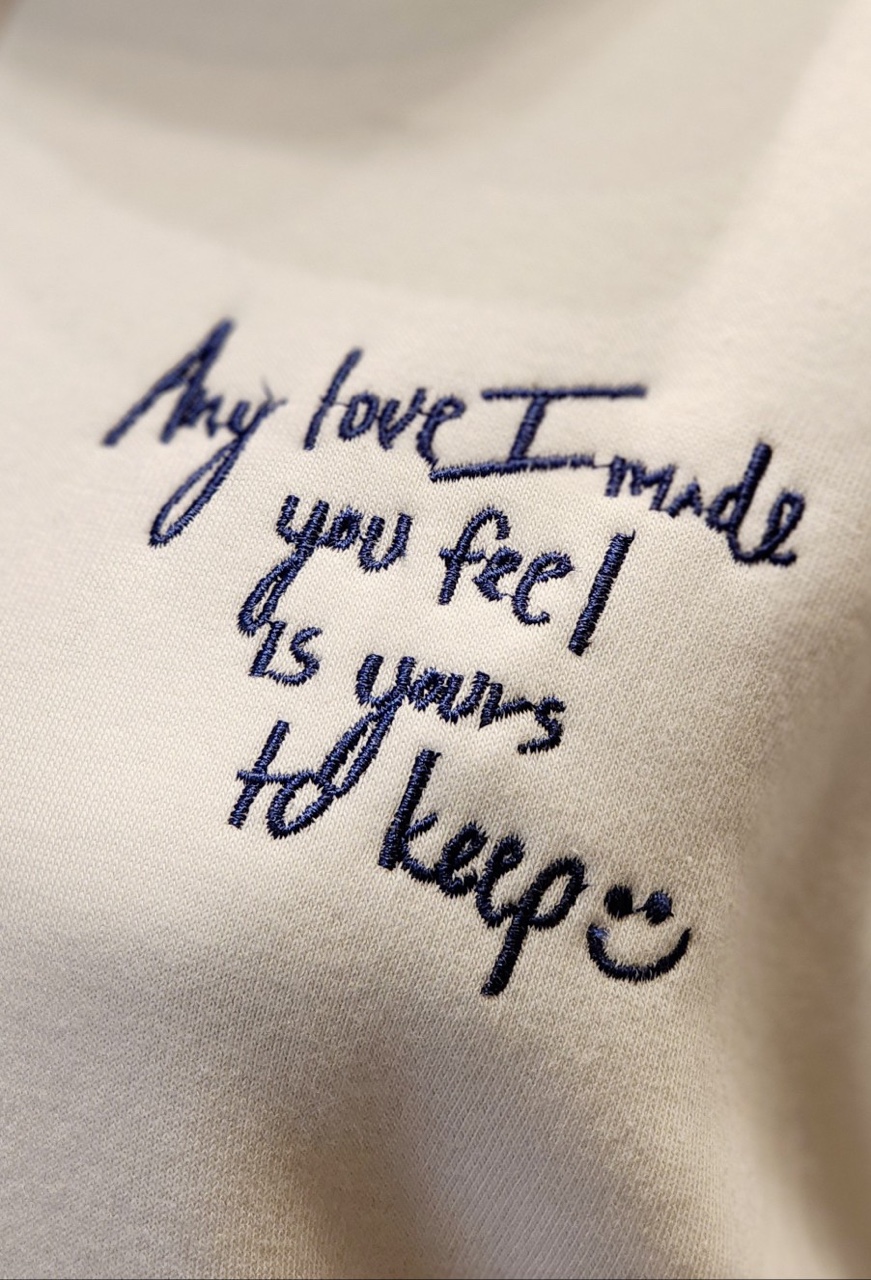 Any love I made
you feel
is yours
to keep